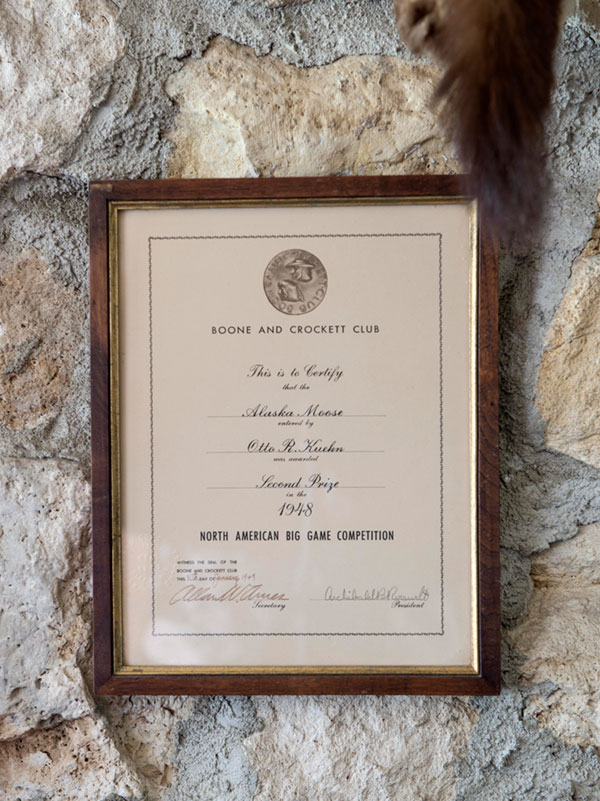 BOONE AND CROCKETT CLUB
This is to Certify
that the
Alaska Moose
entered by
Otto R. Kuehn
was awarded
Second Prize
in the
1948
NORTH AMERICAN BIG GAME COMPETITION
WITNESS THE SEAL OF THE
BOONE AND CROCKETT CLUB
THIS DAY OF 1949
Secretary
Archibald B Roosevelt
President